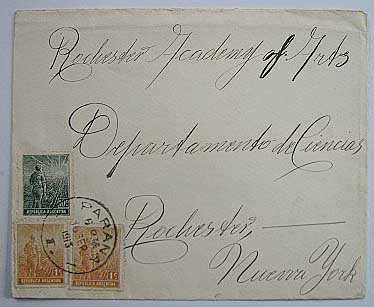 Rochester Academy of Arts
Departamento de Ciencias
Rochester,
Nueva York
REPUBLICA ARGENTINA
PARANA
REPUBLICA ARGENTINA
REPUBLICA ARGENTINA